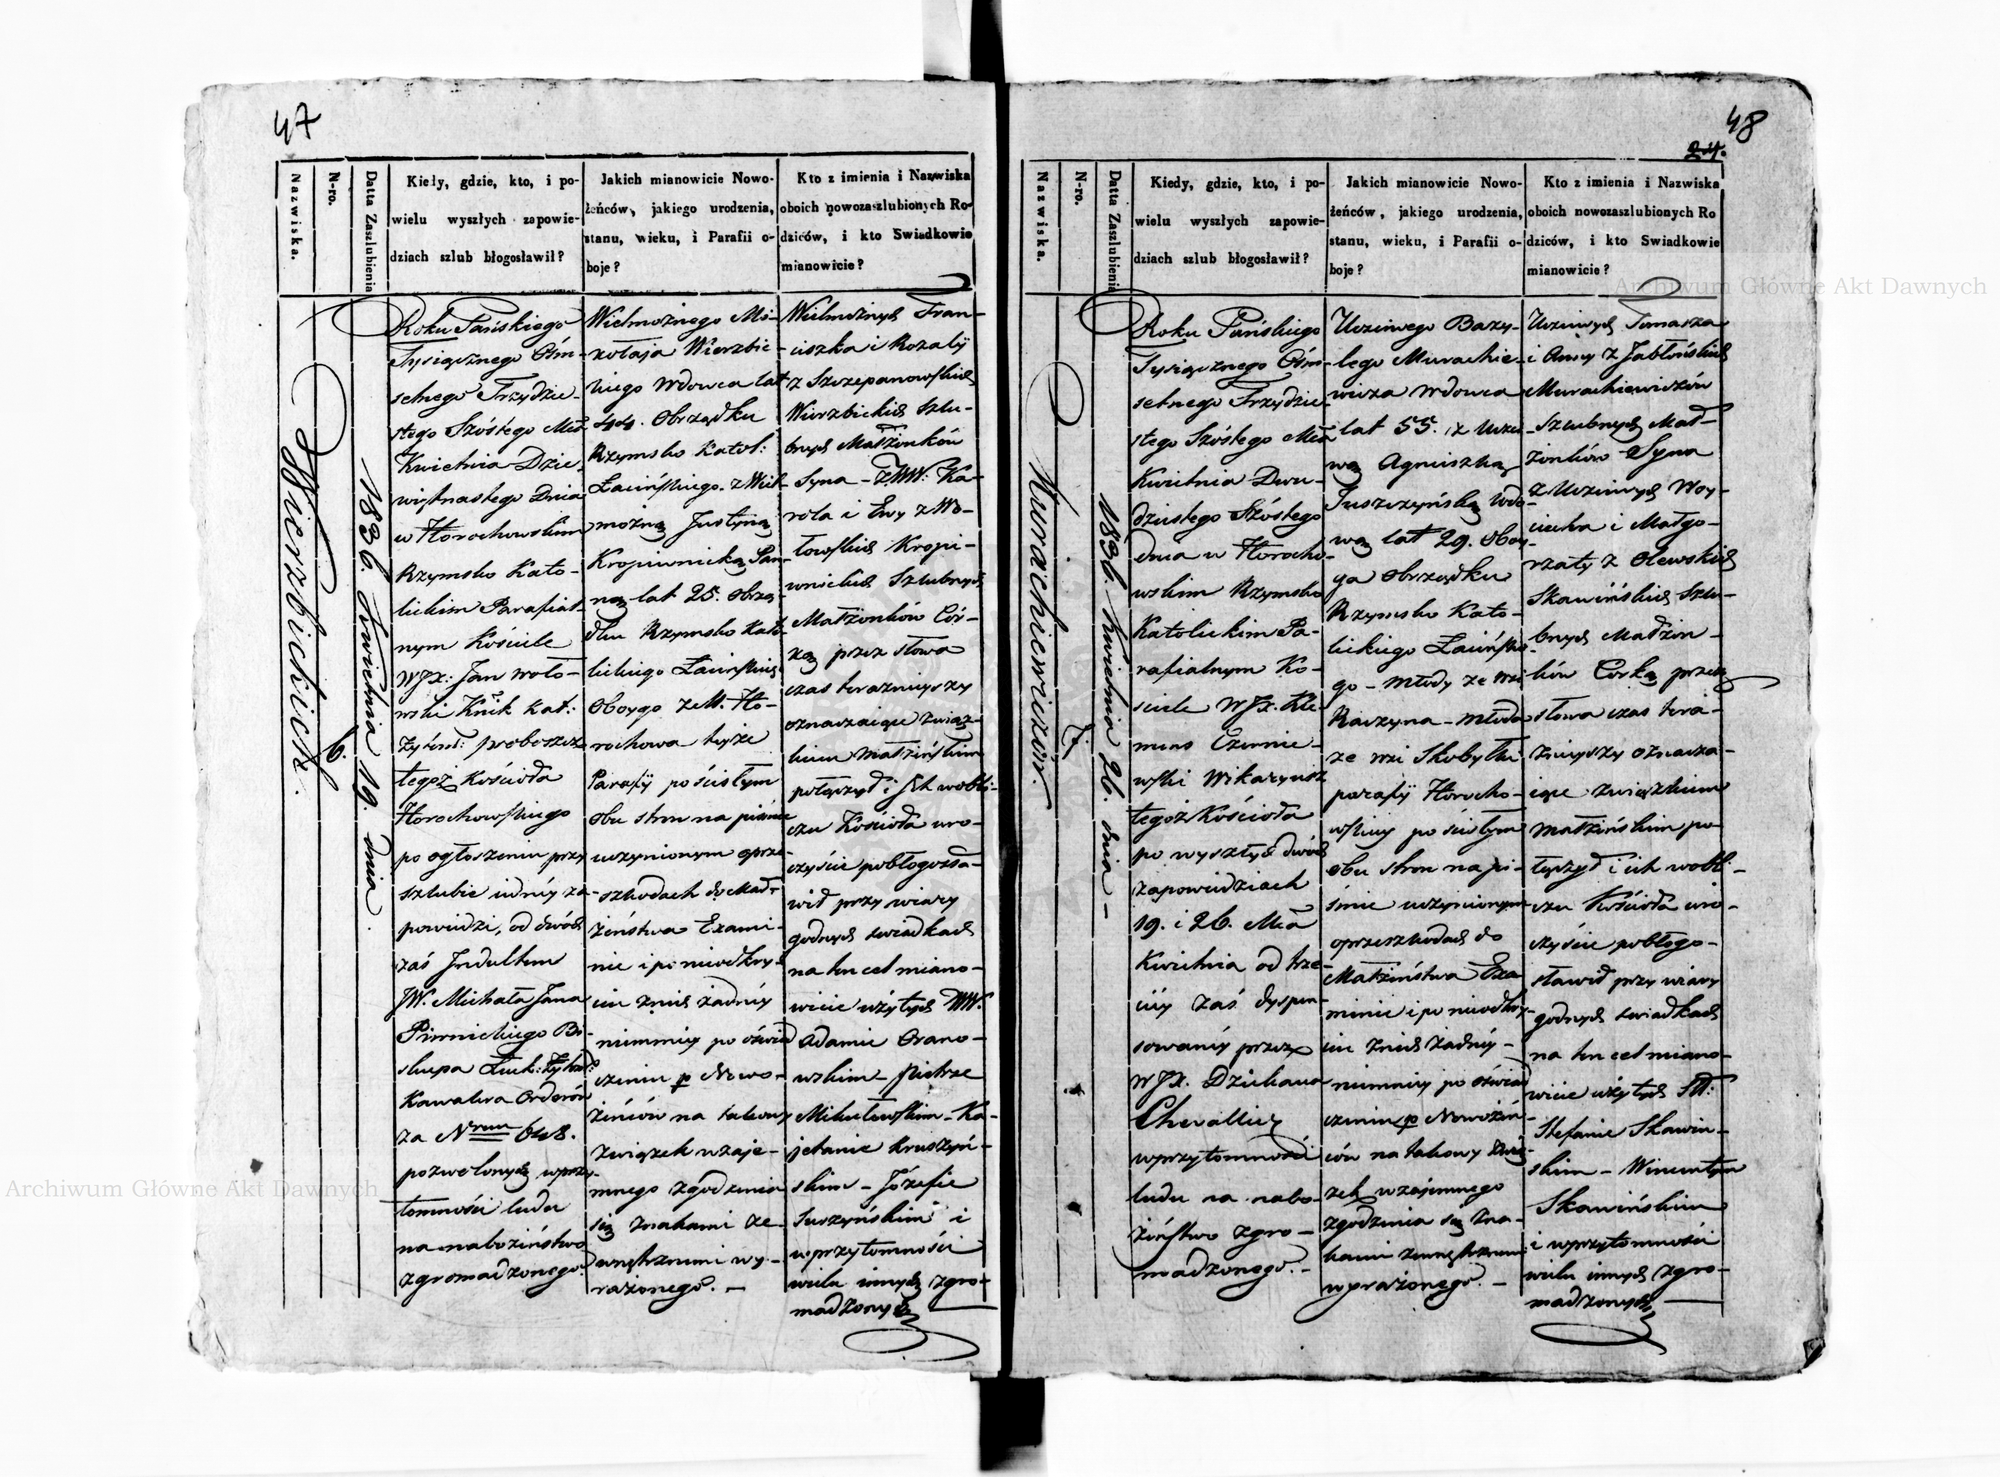 47
Nazwiska.
N-ro.
Datta Zaszlubienia
Kiedy, gdzie, kto, i po-
wielu wyszłych zapowie-
dziach szlub błogosławił?
Jakich mianowicie Nowo-
żeńców, jakiego urodzenia,
stanu, wieku, i Parafii o-
boje?
Kto z imienia i Nazwiska
oboich nowozaszlubionych Ro-
dziców, i kto Swiadkowie
mianowicie?
Wierzbickich.
6.
1836. Kwietnia 19. dnia
Roku Pańskiego
Tysiącznego Ośm-
setnego Trzydzie-
stego Szóstego Mca
Kwietnia Dzie-
więtnastego Dnia
w Horochowskim
Rzymsko Kato-
lickim Parafial-
nym Kościele
WJX: Jan Woło-
wski Knik Kat:
Żytom: proboszcz
tegoż Kościoła
Horochowskiego
po ogłoszeniu przy
szlubie iednéy za-
powiedzi, od dwóch
zaś Indultem
JW. Michała Jana
Piwnickiego Bi-
skupa Łuck: Żytom:
Kawalera Orderów
za Nrem 648.
pozwolonych w przy-
tomności ludu
na nabożeństwo
zgromadzonego.
Wielmożnego Mi-
kołaja Wierzbic-
kiego Wdowca lat
44. Obrządku
Rzymsko Katol:
Łacińskiego z Wiel-
możną Justyną
Kropiwnicką Pan-
ną lat 25. Obrzą-
dku Rzymsko Kato-
lickiego Łacińskiego
Oboygo z M. Ho-
rochowa teyże
Parafij po ścisłym
obu stron na piśmie
uczynionym o prze-
szkodach do Mał-
żeństwa Exami-
nie i po nieodkry-
ciu z nich żadnéy
niemniey po oświad
czeniu p Nowo-
żeńców na takowy
związek wzaje-
mnego zgodzenia
się znakami ze-
wnętrznemi wy-
rażonego. —
Wielmożnych Fran-
ciszka i Rozalij
z Szczepanowskich
Wierzbickich szlu-
bnych Małżonków
Syna – z WW: Ka-
rola i Ewy z Wo-
łowskich Kropi-
wnickich Szlubnych
Małżonków Cór-
ką przez słowa
czas teraznieyszy
oznaczaiące związ-
kiem małżeńskim
połączył i Ich w obli-
czu Kościoła uro-
czyście pobłogosła-
wił przy wiary
godnych swiadkach
na ten cel miano-
wicie użytych WW.
Adamie Orano-
wskim – Piotrze
Mikułowskim – Ka-
jetanie Kruszyń-
skim – Józefie
Suszyńskim i
w przytomności
wielu innych zgro-
madzonych
48
24.
Nazwiska.
N-ro.
Datta Zaszlubienia
Kiedy, gdzie, kto, i po-
wielu wyszłych zapowie-
dziach szlub błogosławił?
Jakich mianowicie Nowo-
żeńców, jakiego urodzenia,
stanu, wieku, i Parafii o-
boje?
Kto z imienia i Nazwiska
oboich nowozaszlubionych Ro
dziców, i kto Swiadkowie
mianowicie?
Murachiewiczów.
7.
1836. Kwietnia 26. dnia –
Roku Pańskiego
Tysiącznego Ośm-
setnego Trzydzie-
stego Szóstego Mca
Kwietnia Dwu-
dziestego Szóstego
dnia w Horocho-
wskim Rzymsko
Katolickim Pa-
rafialnym Ko-
ściele WJX. Kle-
mens Czernie-
wski Wikaryusz
tegoż Kościoła
po wyszłych dwóch
zapowiedziach
19. i 26. Mca
Kwietnia od trze-
ciéy zaś dyspen-
sowanéy przez
WJX. Dziekana
Chevallier
w przytomności
ludu na nabo-
żeństwo zgro-
madzonego. –
Uczciwego Bazy-
lego Murachie-
wicza Wdowca
lat 55. z Uczci-
wą Agnieszką
Juszczyńską Wdo-
wą lat 29. Oboy-
ga Obrządku
Rzymsko Kato-
lickiego Łacińskie-
go – młody ze wsi
Raczyna – młoda
ze wsi Skobyłki
parafij Horocho-
wskiey po ścisłym
obu stron na pi-
śmie uczynionym
o przeszkodach do
Małżeństwa Exa
minie i po nieodkry-
ciu z nich żadnéy –
niemniey po oświad
czeniu p Nowożeń-
ców na takowy Zwią-
zek wzajemnego
zgodzenia się zna-
kami zewnętrznemi
wyrażonego. –
Uczciwych Tomasza
i Anny z Jabłońskich
Murachiewiczów
Szlubnych Mał-
żonków Syna
z Uczciwych Woy-
ciecha i Małgo-
rzaty z Olewskich
Skawińskich Szlu-
bnych Małżon-
ków Córką przez
słowa czas tera-
znieyszy oznacza-
iące związkiem
małżeńskim po-
łączył i ich w obli-
czu Kościoła uro-
czyście pobłogo-
sławił przy wiary
godnych swiadkach
na ten cel miano-
wicie użytych
Stefanie Skawin-
skim – Wincentym
Skawińskim
i w przytomności
wielu innych zgro-
madzonych
Archiwum Główne Akt Dawnych
Archiwum Główne Akt Dawnych